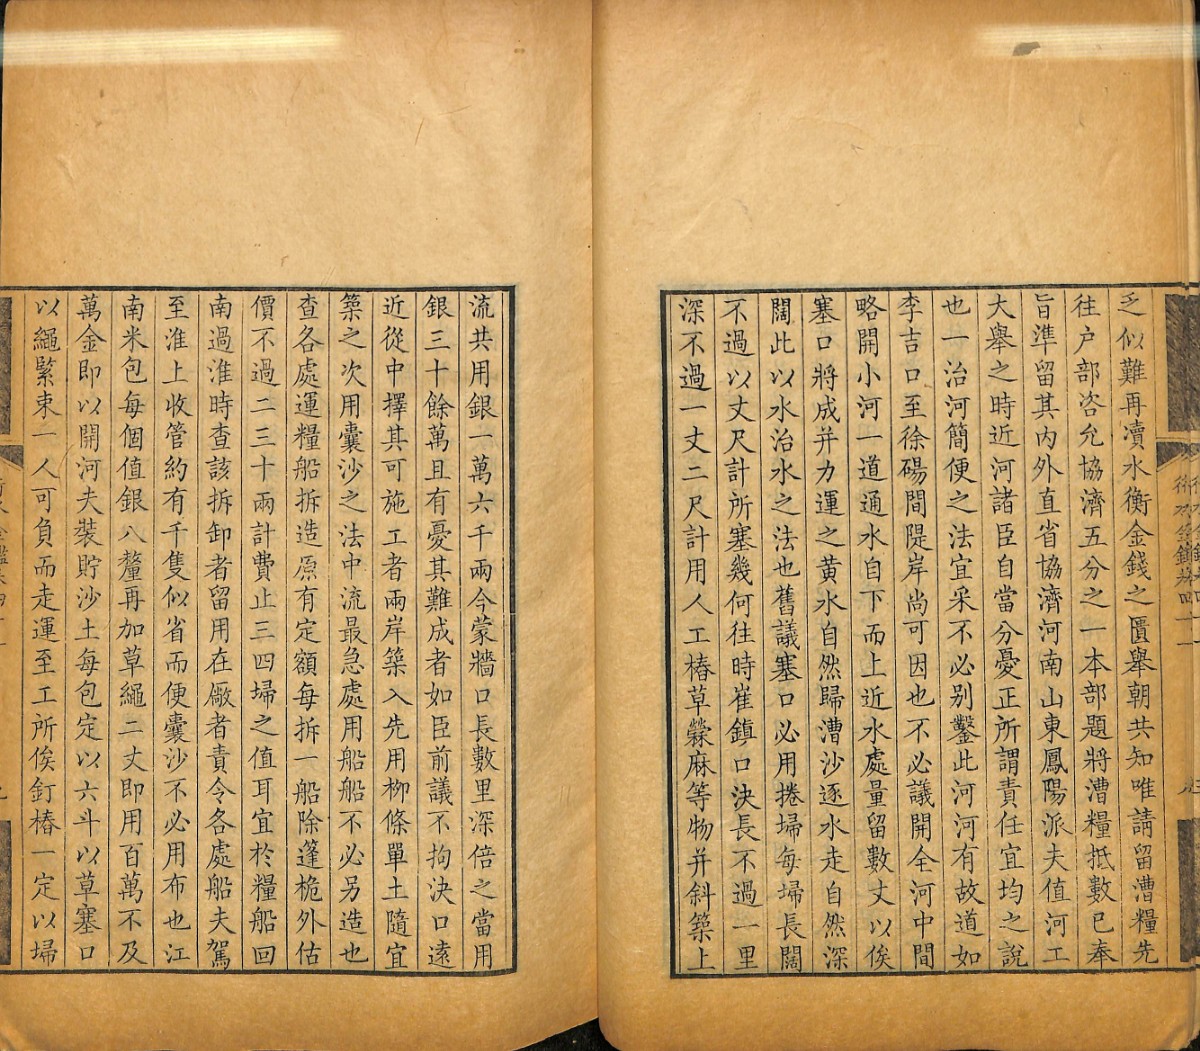 乏似難再瀆水衡金錢之匱舉朝共知唯請留漕糧先
往户部咨允協濟五分之一本部題將漕糧抵數已奉
旨準留其内外直省協濟河南山東鳳陽派夫值河工
大舉之時近河諸臣自當分憂正所謂責任宜均之說
也一治河簡便之法宜采不必别鑿此河河有故道如
李吉口至徐碭間隄岸尚可因也不必議開全河中間
略開小河一道通水自下而上近水處量留數丈以俟
塞口將成并力運之黄水自然歸漕沙逐水走自然深
闊此以水治水之法也舊議塞口必用捲埽每埽長闊
不過以丈尺計所塞幾何往時崔鎮口決長不過一里
深不過一丈二尺計用人工樁草檾麻等物并斜築上
流共用銀一萬六千兩今蒙牆口長數里深倍之當用
銀三十餘萬且有憂其難成者如臣前議不拘決口遠
近從中擇其可施工者兩岸築入先用柳條單土隨宜
築之次用囊沙之法中流最急處用船船不必另造也
查各處運糧船拆造原有定額每拆一船除篷桅外估
價不過二三十兩計費止三四埽之值耳宜於糧船回
南過淮時查該拆卸者留用在厰者責令各處船夫駕
至淮上收管約有千隻似省而便囊沙不必用布也江
南米包每個值銀八釐再加草繩二丈即用百萬不及
萬金即以開河夫裝貯沙土每包定以六斗以草塞口
以繩緊束一人可負而走運至工所俟釘樁一定以埽